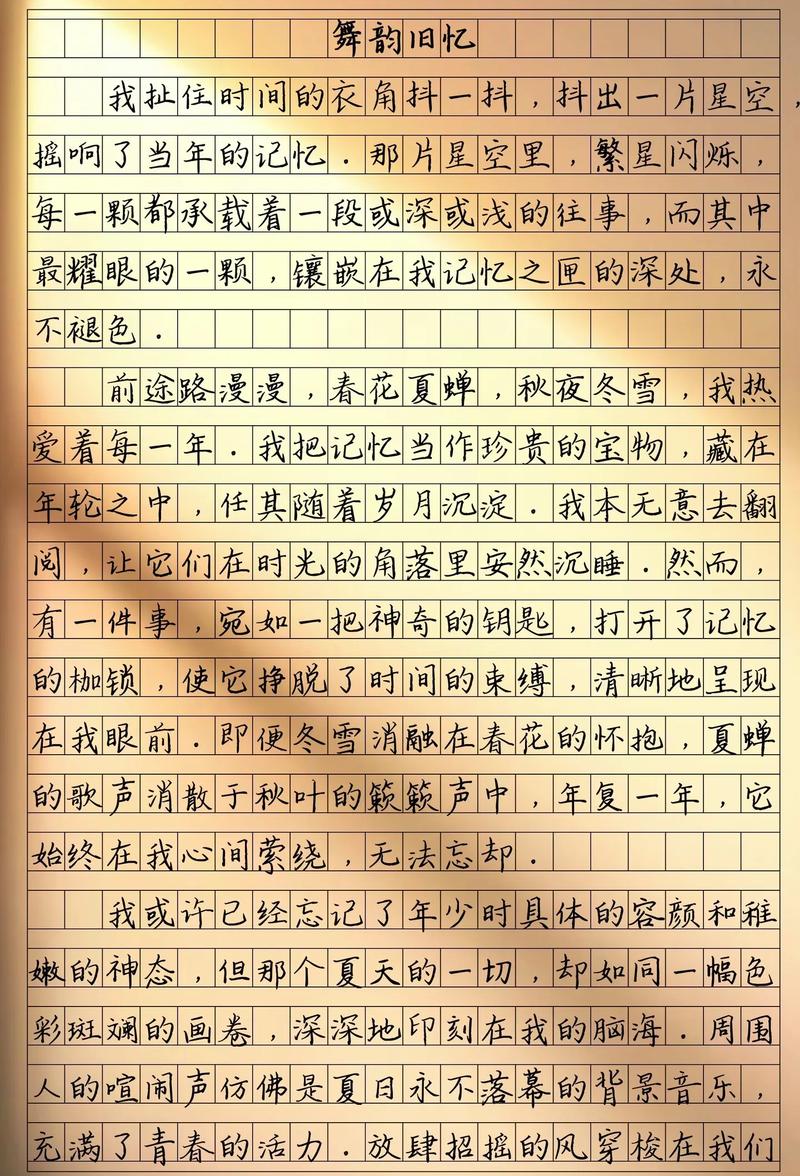 舞韵旧忆
我扯住时间的衣角抖一抖，抖出一片星空，
摇响了当年的记忆．那片星空里，繁星闪烁，
每一颗都承载着一段或深或浅的往事，而其中
最耀眼的一颗，镶嵌在我记忆之匣的深处，永
不褪色．
前途路漫漫，春花夏蝉，秋夜冬雪，我热
爱着每一年．我把记忆当作珍贵的宝物，藏在
年轮之中，任其随着岁月沉淀．我本无意去翻
阅，让它们在时光的角落里安然沉睡．然而，
有一件事，宛如一把神奇的钥匙，打开了记忆
的枷锁，使它挣脱了时间的束缚，清晰地呈现
在我眼前．即便冬雪消融在春花的怀抱，夏蝉
的歌声消散于秋叶的簌簌声中，年复一年，它
始终在我心间萦绕，无法忘却．
我或许已经忘记了年少时具体的容颜和稚
嫩的神态，但那个夏天的一切，却如同一幅色
彩斑斓的画卷，深深地印刻在我的脑海．周围
人的喧闹声仿佛是夏日永不落幕的背景音乐，
充满了青春的活力．放肆招摇的风穿梭在我们